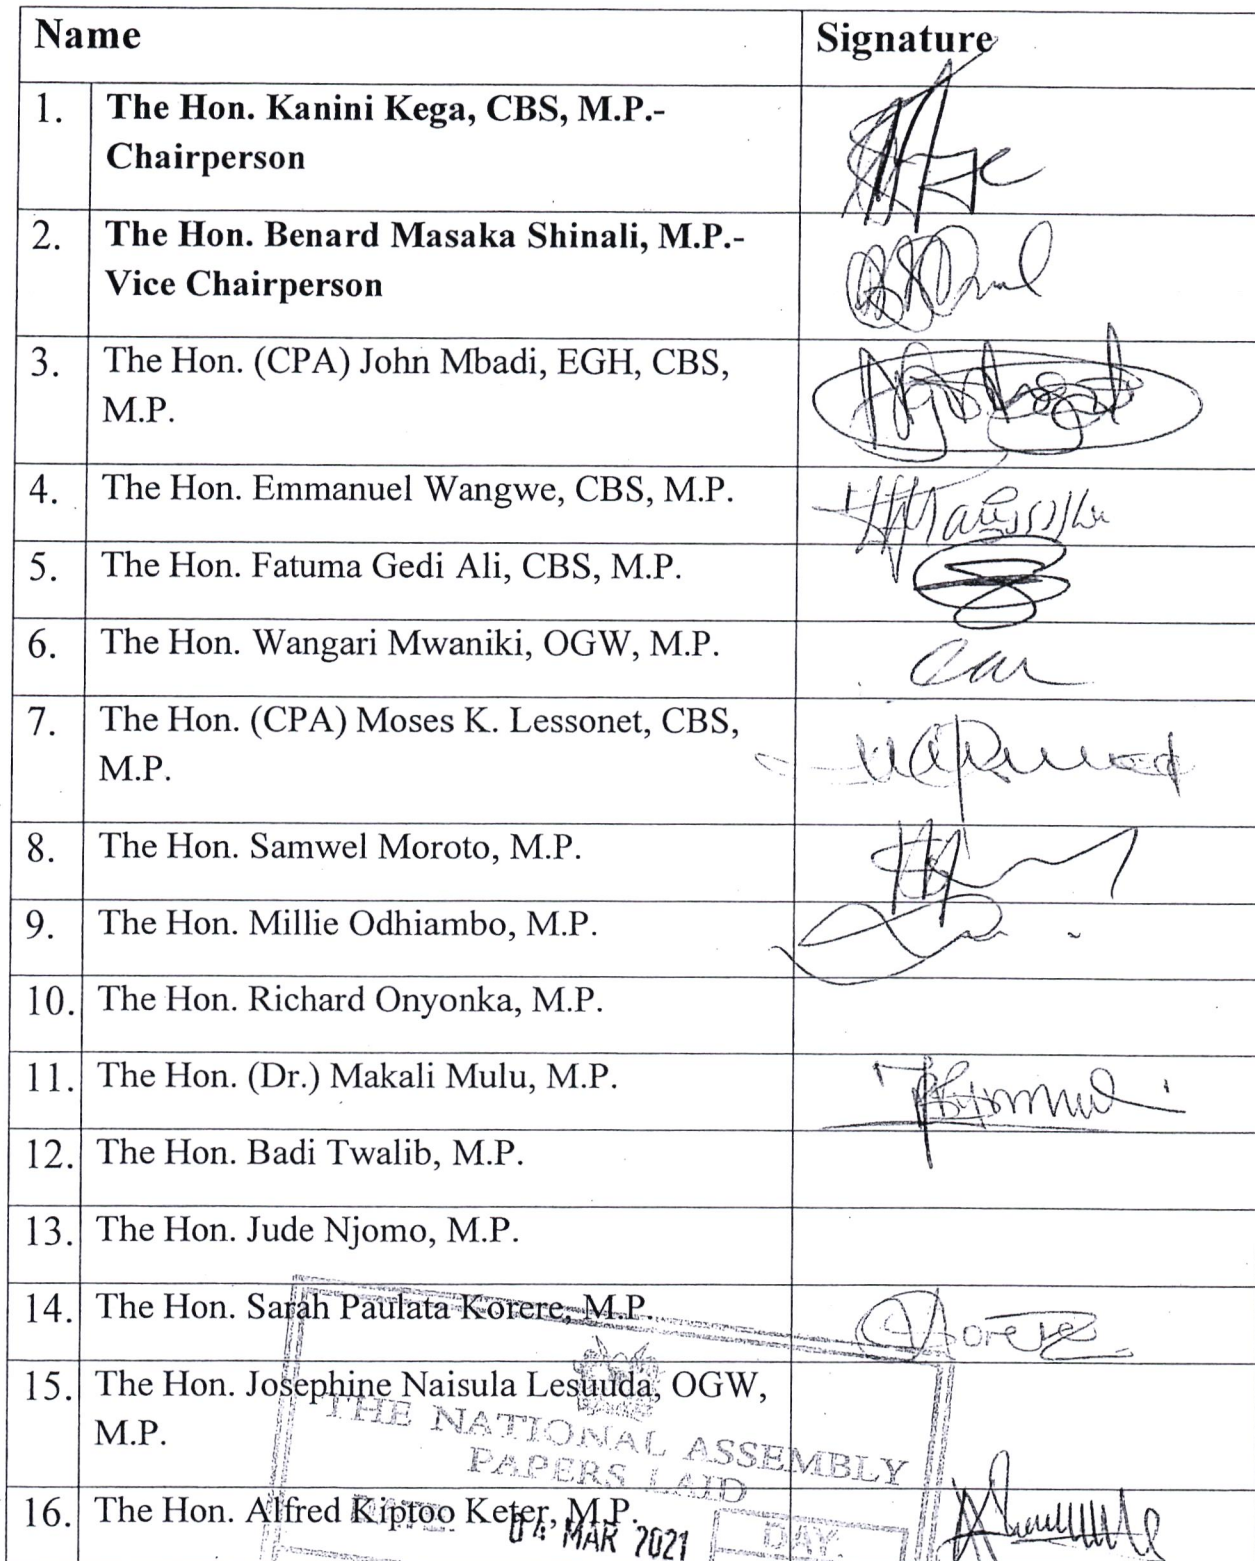 Name Signature
1. The Hon. Kanini Kega, CBS, M.P.-
Chairperson
2. The Hon. Benard Masaka Shinali, M.P.-
Vice Chairperson
3. The Hon. (CPA) John Mbadi, EGH, CBS,
M.P.
4. The Hon. Emmanuel Wangwe, CBS, M.P.
5. The Hon. Fatuma Gedi Ali, CBS, M.P.
6. The Hon. Wangari Mwaniki, OGW, M.P.
7. The Hon. (CPA) Moses K. Lessonet, CBS,
M.P.
8. The Hon. Samwel Moroto, M.P.
9. The Hon. Millie Odhiambo, M.P.
10. The Hon. Richard Onyonka, M.P.
11. The Hon. (Dr.) Makali Mulu, M.P.
12. The Hon. Badi Twalib, M.P.
13. The Hon. Jude Njomo, M.P.
14. The Hon. Sarah Paulata Korere, M.P.
15. The Hon. Josephine Naisula Lesuuda, OGW,
M.P.
THE NATIONAL ASSEMBLY
PAPERS LAID
16. The Hon. Alfred Kiptoo Keter, M.P.
DATE: 04 MAR 2021 DAY.